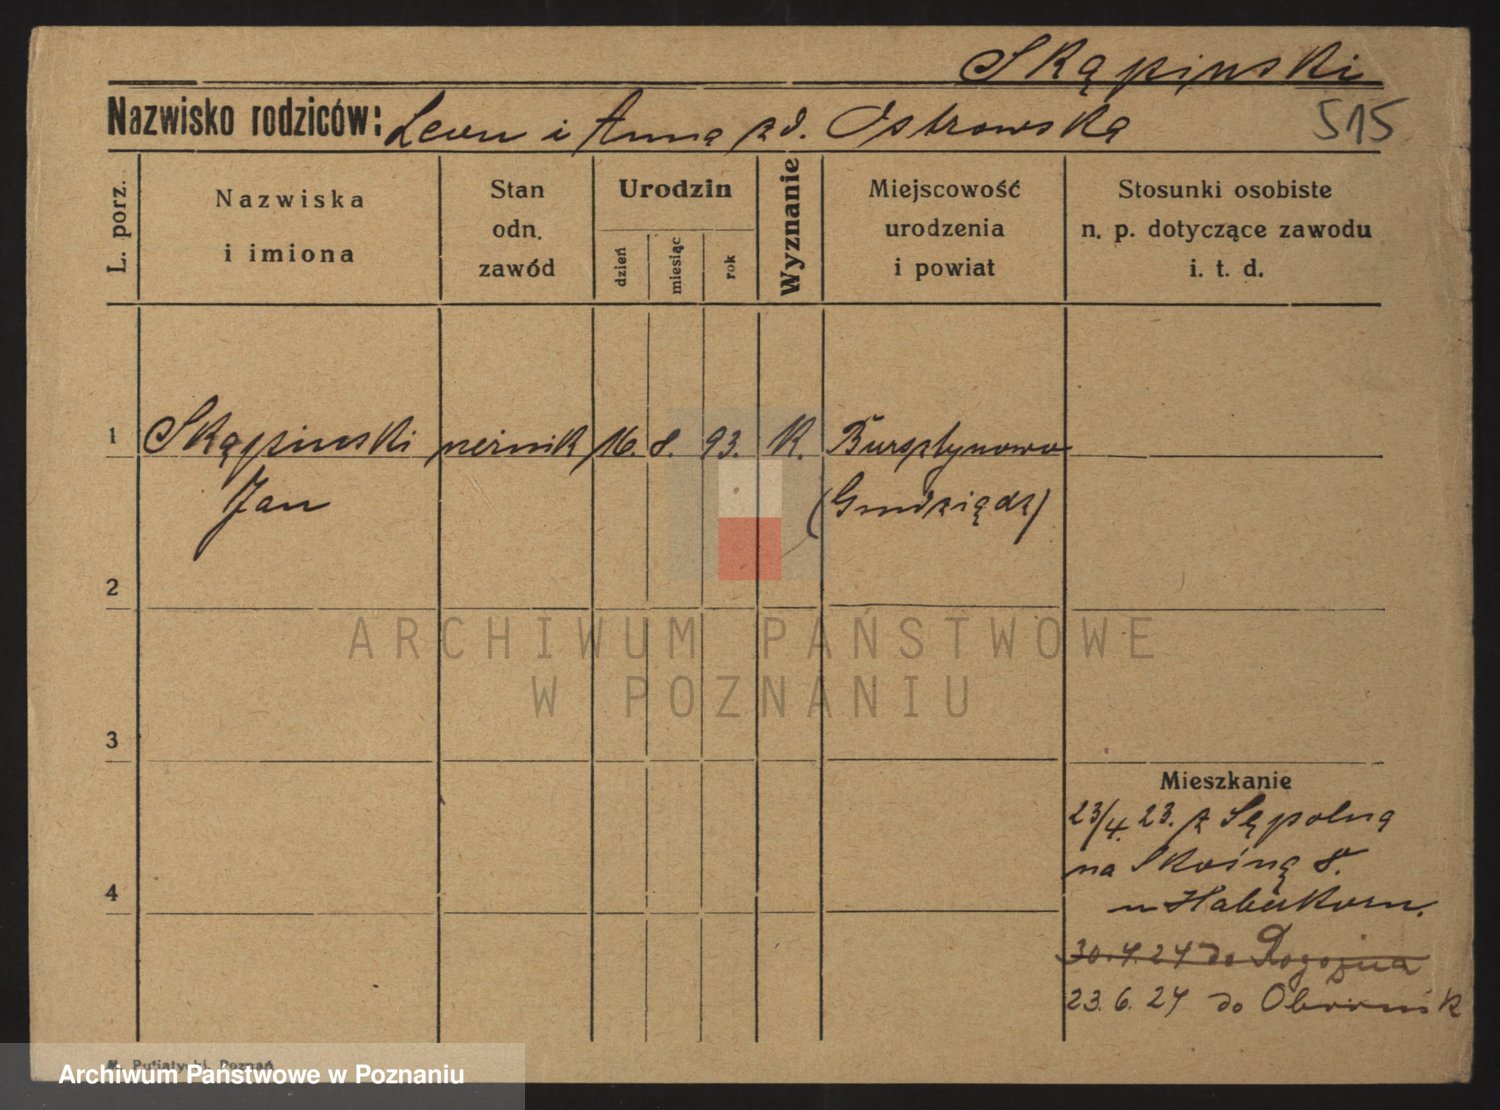 Skąpinski
515
Nazwisko rodziców: Leon i Anna zd. Ostrowska
L. porz.
Nazwiska
i imiona
Stan
odn.
zawód
Urodzin
dzień
miesiąc
rok
Wyznanie
Miejscowość
urodzenia
i powiat
Stosunki osobiste
n. p. dotyczące zawodu
i. t. d.
1 Skąpinski 16. 8. 93. K. Bursztynowo
Jan (Grudziądz)
2
ARCHIWUM PAŃSTWOWE
W POZNANIU
3
Mieszkanie
23/4. 23. z Sępolna
na Skośną 8.
4
u Haberkorn.
30.4.24 do Rogoźna
23.6.24 do Obornik
Poznań
Archiwum Państwowe w Poznaniu